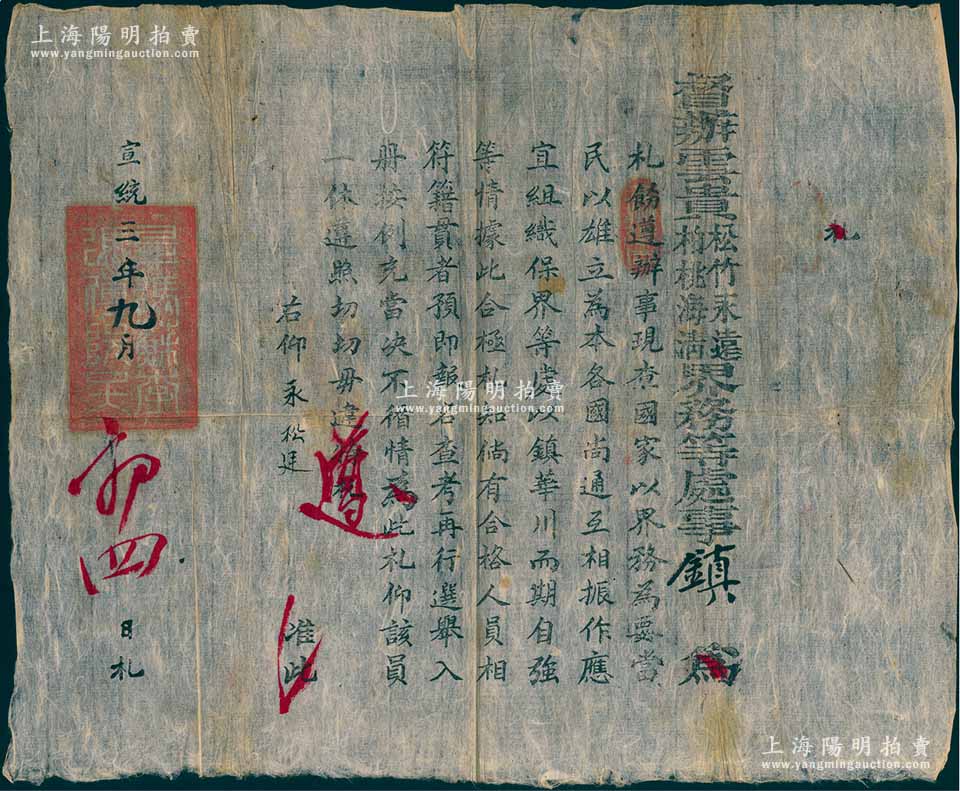 札
督辦雲貴松竹永遠柏桃海清界務等處事鎮 為
札飭遵辦事現查國家以界務為要當
民以雄立為本各國尚通互相振作應
宜組織保界等處以鎮華川而期自強
等情據此合極札知倘有合格人員相
符籍貫者預即報名查考再行選舉入
册按例充當决不徇情為此札仰該員
一体遵照切切毋違
右仰永松廷 准此
遵
宣統三年九月 初四 日札
上海陽明拍賣
www.yangmingauction.com
上海陽明拍賣
www.yangmingauction.com